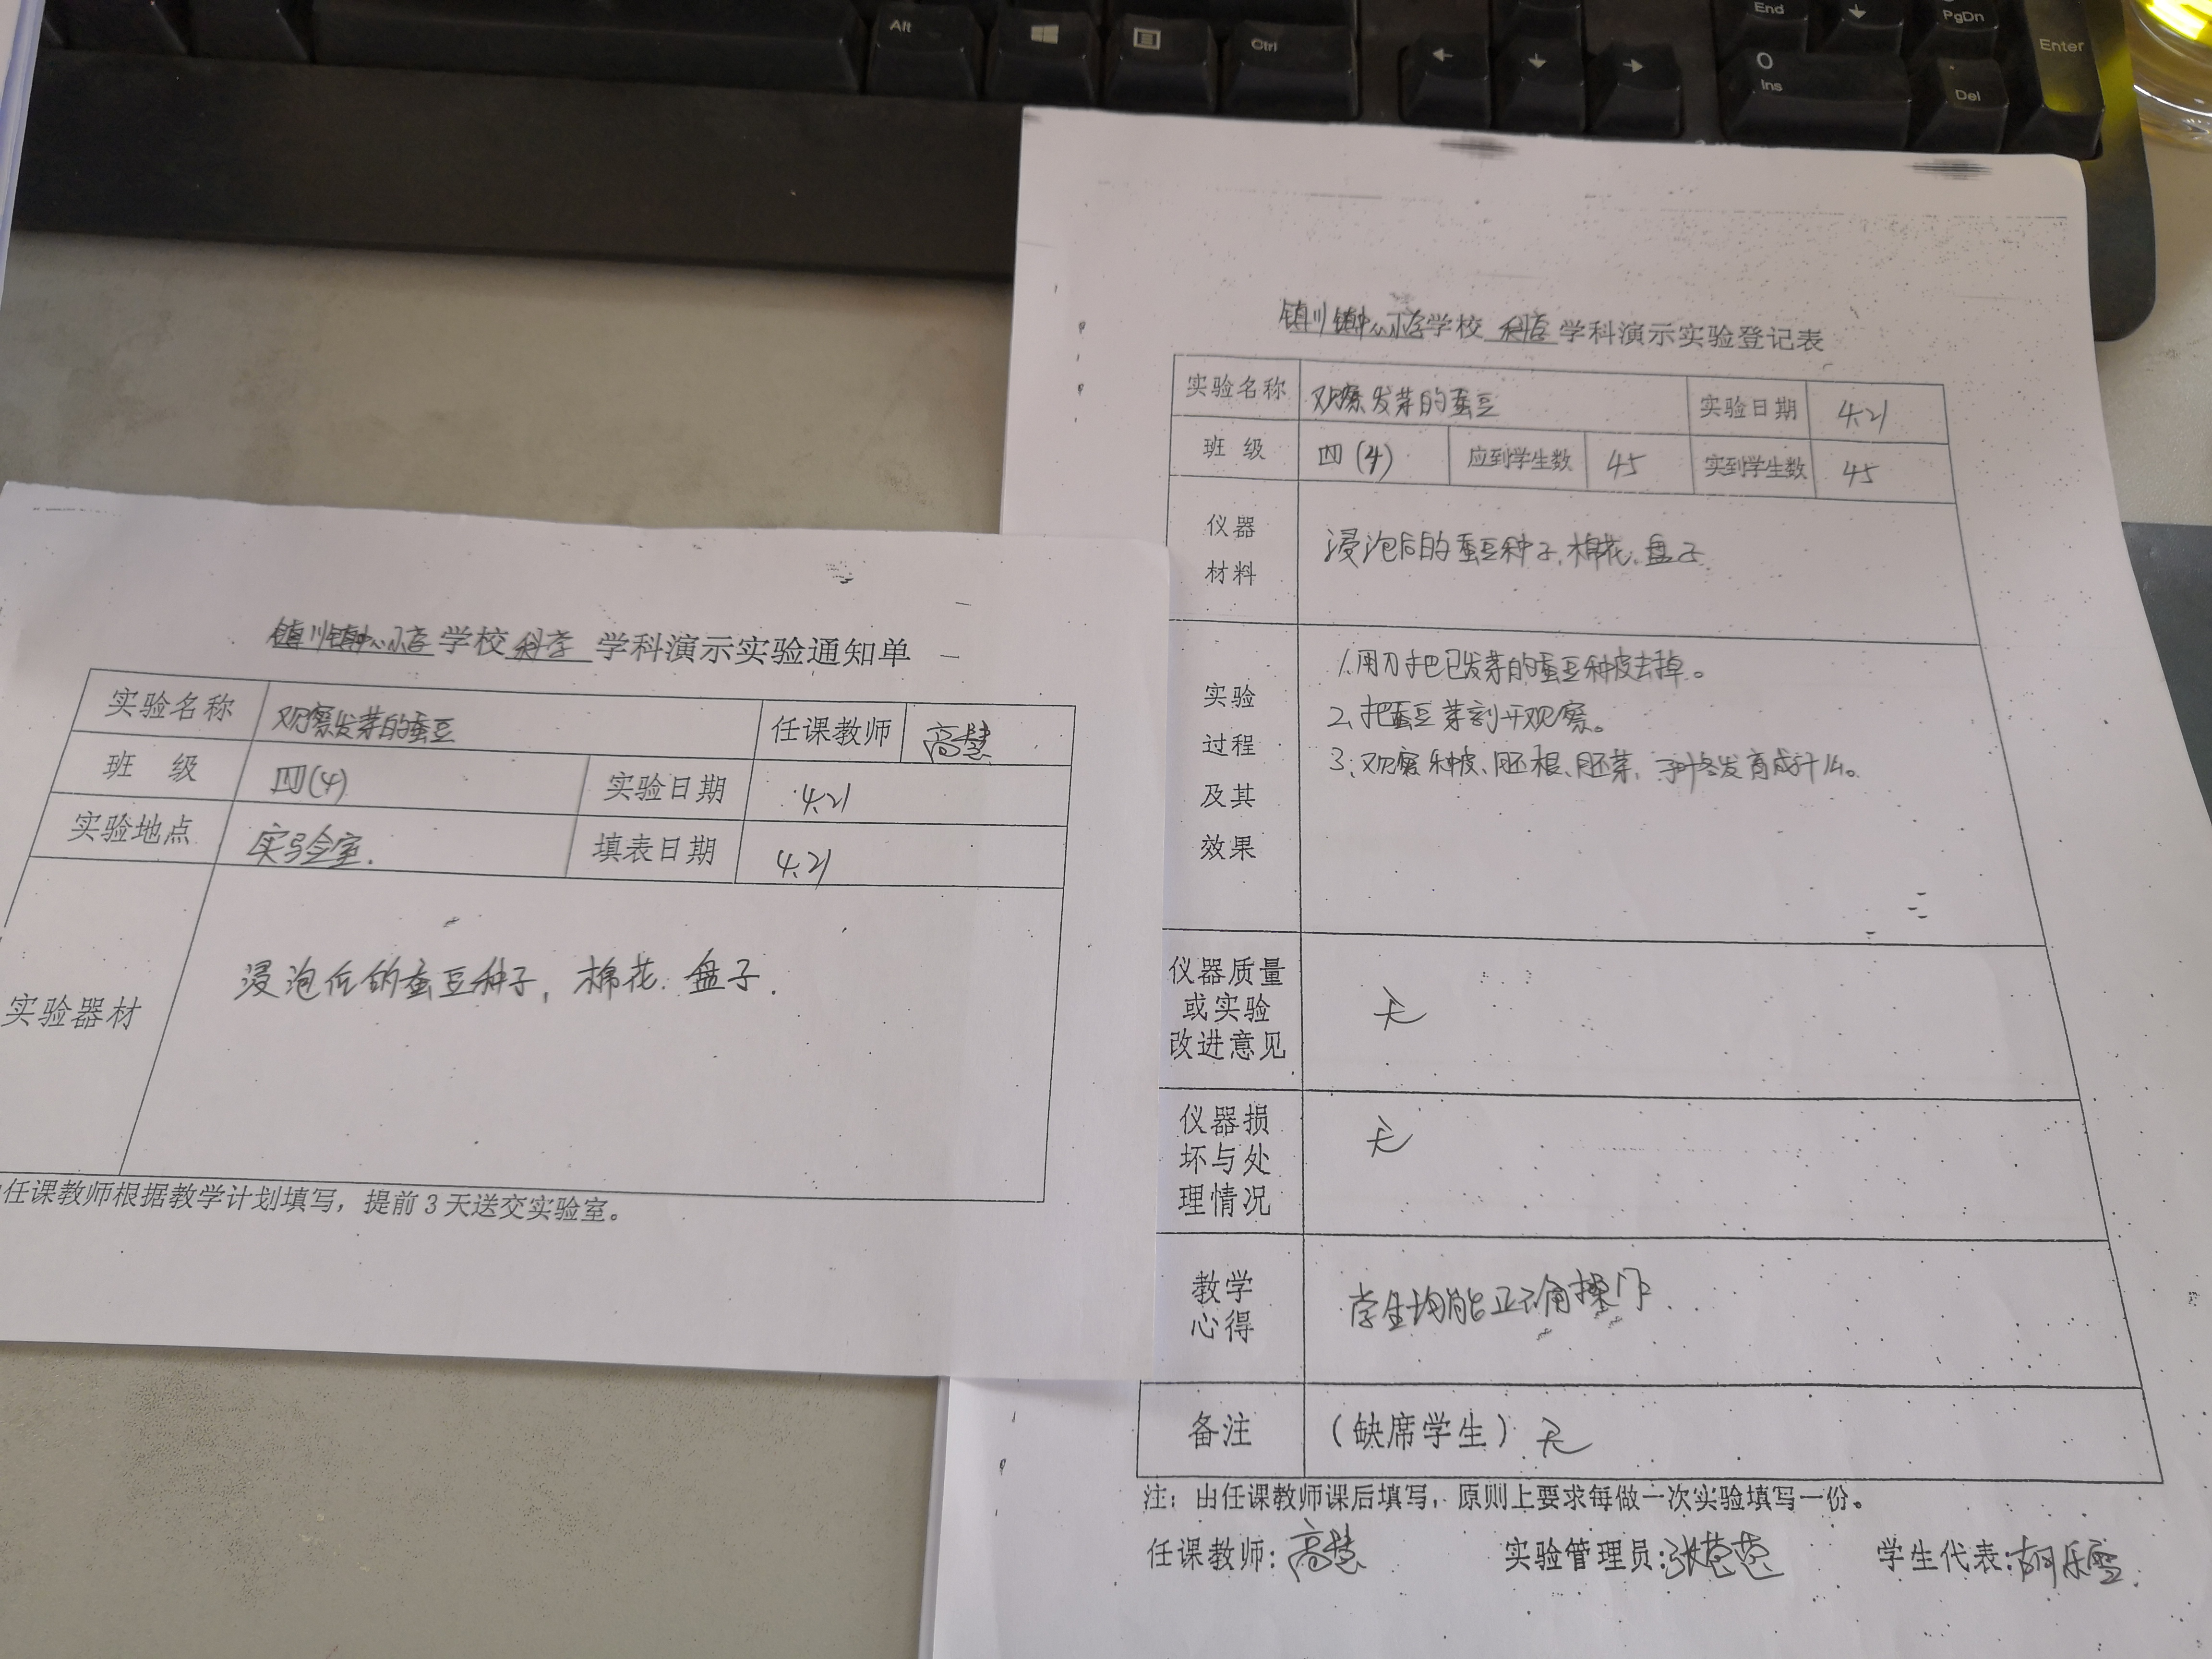 Alt
Ctrl
End
PgDn
Enter
0
Ins
Del
镇川镇中心小学学校 科学 学科演示实验通知单
实验名称 观察发芽的蚕豆 任课教师 高慧
班 级 四(4) 实验日期 4.21
实验地点 实验室. 填表日期 4.21
实验器材 浸泡后的蚕豆种子, 棉花. 盘子.
任课教师根据教学计划填写，提前3天送交实验室。
镇川镇中心小学学校 科学 学科演示实验登记表
实验名称 观察发芽的蚕豆 实验日期 4.21
班 级 四(4) 应到学生数 45 实到学生数 45
仪器
材料
浸泡后的蚕豆种子, 棉花. 盘子.
实验
过程
及其
效果
1.用刀把已发芽的蚕豆种皮去掉。
2.把蚕豆芽剖开观察。
3.观察种皮、胚根、胚芽、子叶各发育成什么。
仪器质量
或实验
改进意见
无
仪器损
坏与处
理情况
无
教学
心得
学生均能正确操作
备注 （缺席学生）无
注：由任课教师课后填写，原则上要求每做一次实验填写一份。
任课教师：高慧 实验管理员：张 学生代表：胡乐雪.